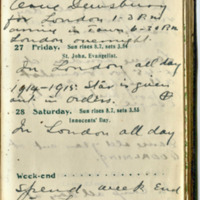 leave Dewsbury
for London 1-3 P.M
arriving in town 6-30 P.M
London overnight.
27 Friday. Sun rises 8.7, sets 3.54
St. John, Evangelist.
In London all day
1914-1915 Star is given
out in orders.
28 Saturday. Sun rises 8.7, sets 3.55
Innocents' Day.
In London all day
Week-end
Spend week End